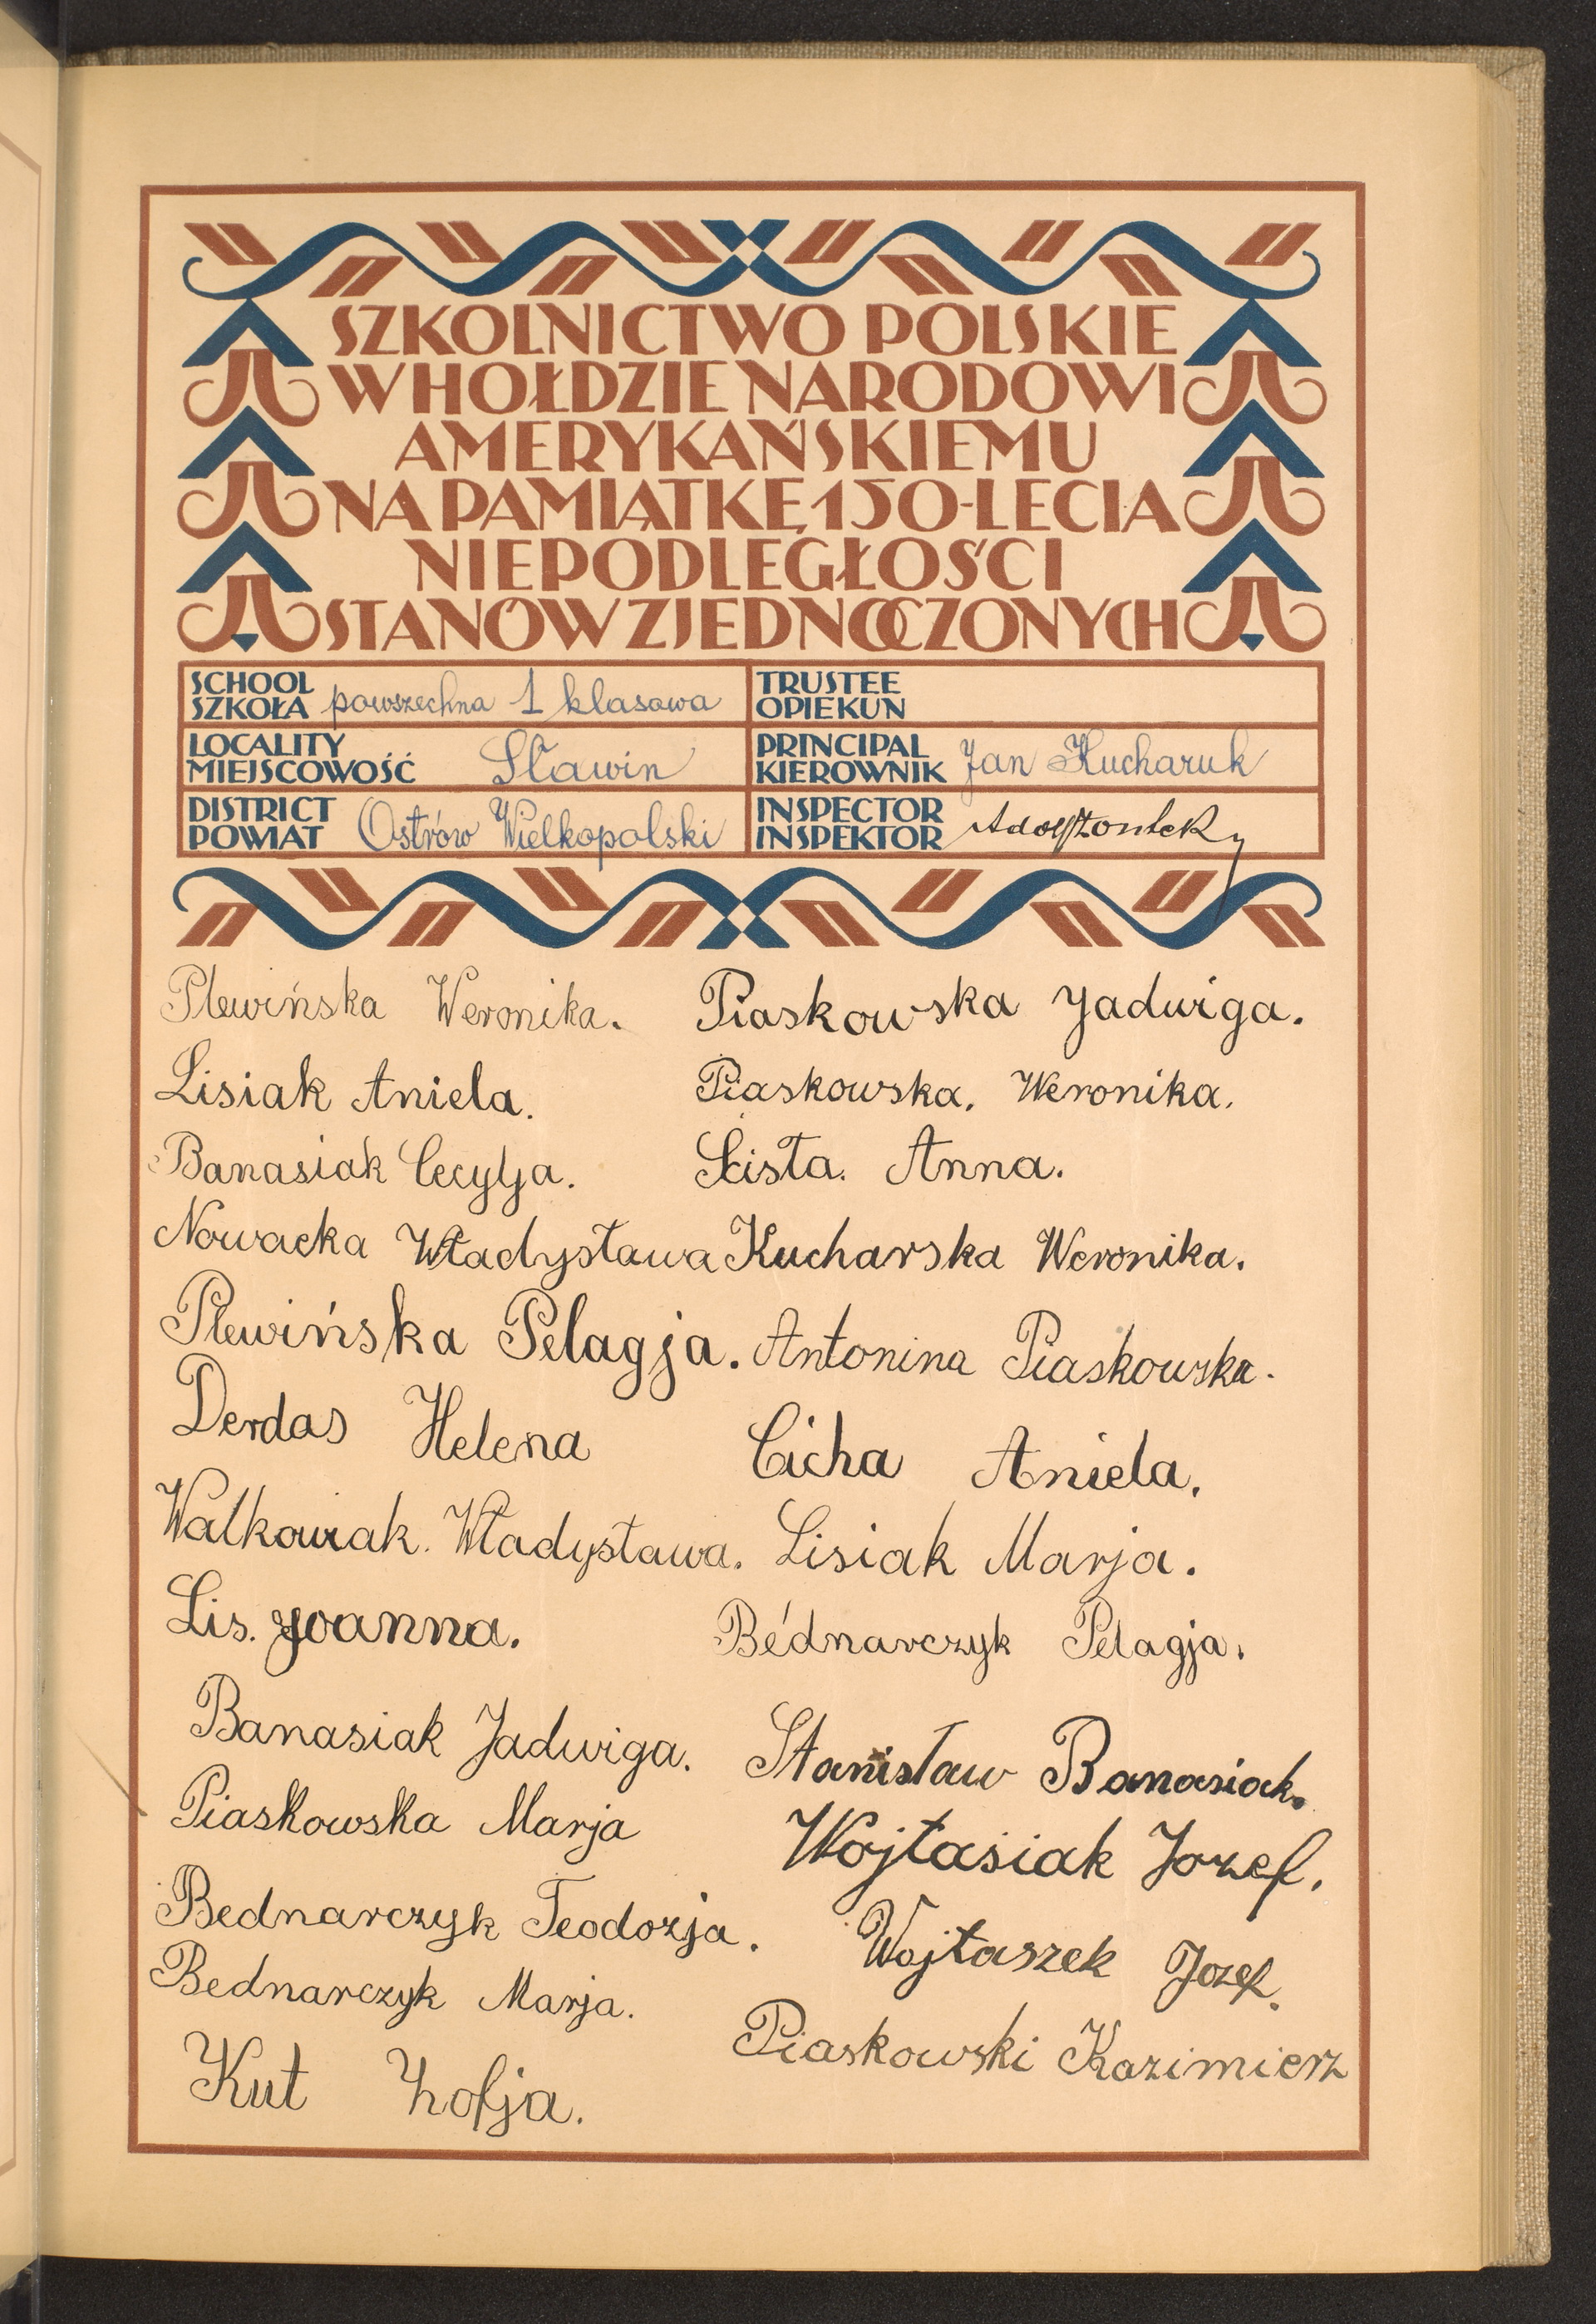 SZKOLNICTWO POLSKIE
W HOŁDZIE NARODOWI
AMERYKAŃSKIEMU
NA PAMIĄTKĘ 150-LECIA
NIEPODLEGŁOŚCI
STANÓW ZJEDNOCZONYCH
SCHOOL
SZKOŁA powszechna 1 klasowa
TRUSTEE
OPIEKUN
LOCALITY
MIEJSCOWOŚĆ Sławin
PRINCIPAL
KIEROWNIK Jan Kucharuk
DISTRICT
POWIAT Ostrów Wielkopolski
INSPECTOR
INSPEKTOR
Plewińska Weronika.
Lisiak Aniela.
Banasiak Cecylja.
Nowacka Władysława
Plewińska Pelagja.
Derdas Helena
Walkowiak. Władysława.
Lis. Joanna.
Banasiak Jadwiga.
Piaskowska Marja
Bednarczyk Teodozja.
Bednarczyk Marja.
Kut Zofja.
Piaskowska Jadwiga.
Piaskowska. Weronika.
Anna.
Kucharska Weronika.
Antonina Piaskowska.
Cicha Aniela.
Lisiak Marja.
Bednarczyk Pelagja.
Stanisław Banasiak.
Wojtasiak Jozef.
Wojtaszek Jozef.
Piaskowski Kazimierz